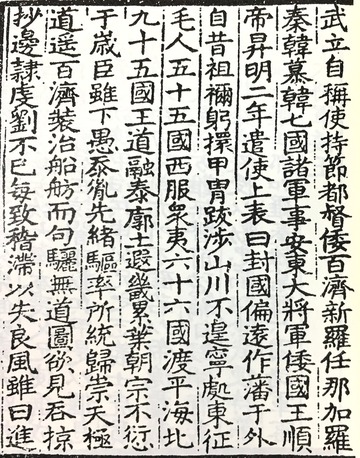 武立自稱使持節都督倭百濟新羅任那加羅
秦韓慕韓七國諸軍事安東大將軍倭國王順
帝昇明二年遣使上表曰封國偏遠作藩于外
自昔祖禰躬擐甲冑跋涉山川不遑寧處東征
毛人五十五國西服衆夷六十六國渡平海北
九十五國王道融泰廓土遐畿累葉朝宗不愆
于歲臣雖下愚忝胤先緒驅率所統歸崇天極
道遥百濟裝治船舫而句驪無道圖欲見吞掠
抄邊隸虔劉不已每致稽滯以失良風雖曰進